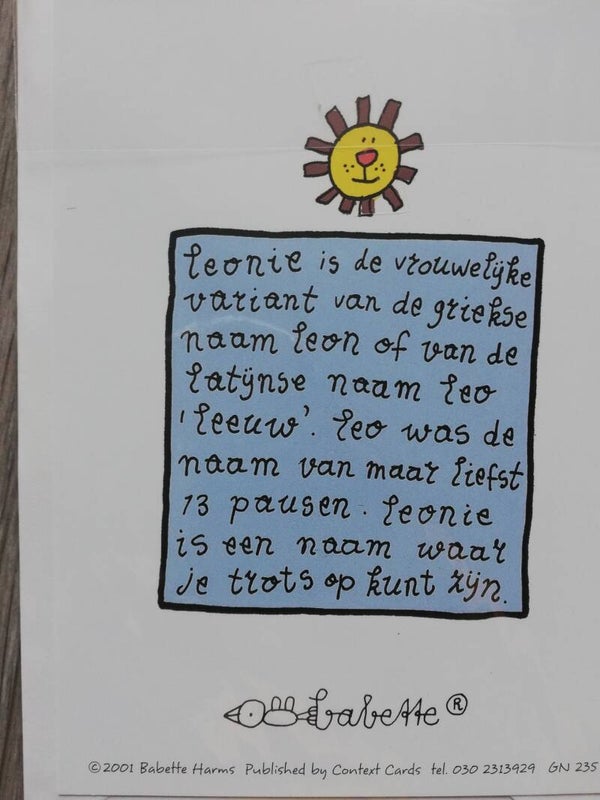 leonie is de vrouwelijke
variant van de griekse
naam leon of van de
latijnse naam leo
'leeuw'. leo was de
naam van maar liefst
13 pausen. leonie
is een naam waar
je trots op kunt zijn.
babette®
©2001 Babette Harms Published by Context Cards tel. 030 2313929 GN 235